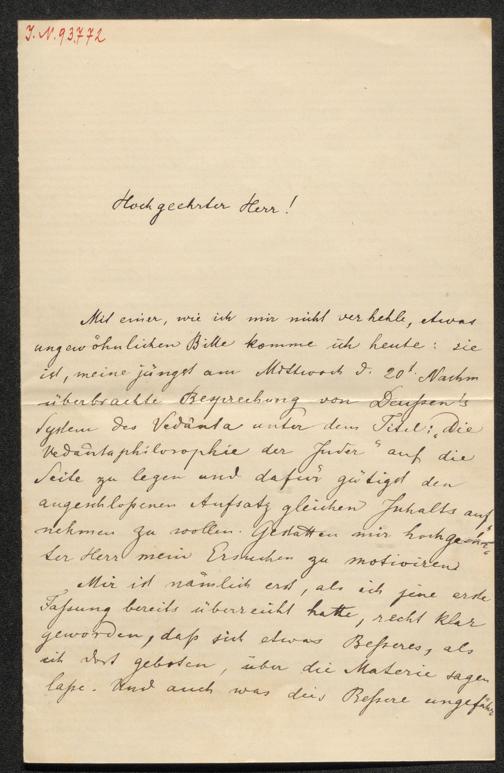 J. N. 93.772
Hochgeehrter Herr!
Mit einer, wie ich mir nicht verhehle, etwas
ungewöhnlichen Bitte komme ich heute: sie
ist, meine jüngst am Mittwoch d. 20t. Nachm
überbrachte Besprechung von Deussen's
System des Vedânta unter dem Titel: „Die
Vedântaphilosophie der Inder“ auf die
Seite zu legen und dafür gütigst den
angeschloßenen Aufsatz gleichen Inhalts auf-
nehmen zu wollen. Gestatten mir hochgeehr-
ter Herr mein Ersuchen zu motiviren
Mir ist nämlich erst, als ich jene erste
Faßung bereits überreicht hatte, recht klar
geworden, daß sich etwas Beßeres, als
ich dort geboten, über die Materie sagen
laße. Und auch was dies Beßere ungefähr